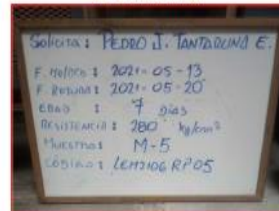 Solicita: PEDRO J. TANTARUNA E.
F. MOLDEO: 2021-05-13
F. ROTURA: 2021-05-20
EDAD : 7 Dias
RESISTENCIA: 280 kg/cm²
MUESTRA: M-5
CÓDIGO: LEM2106RP05